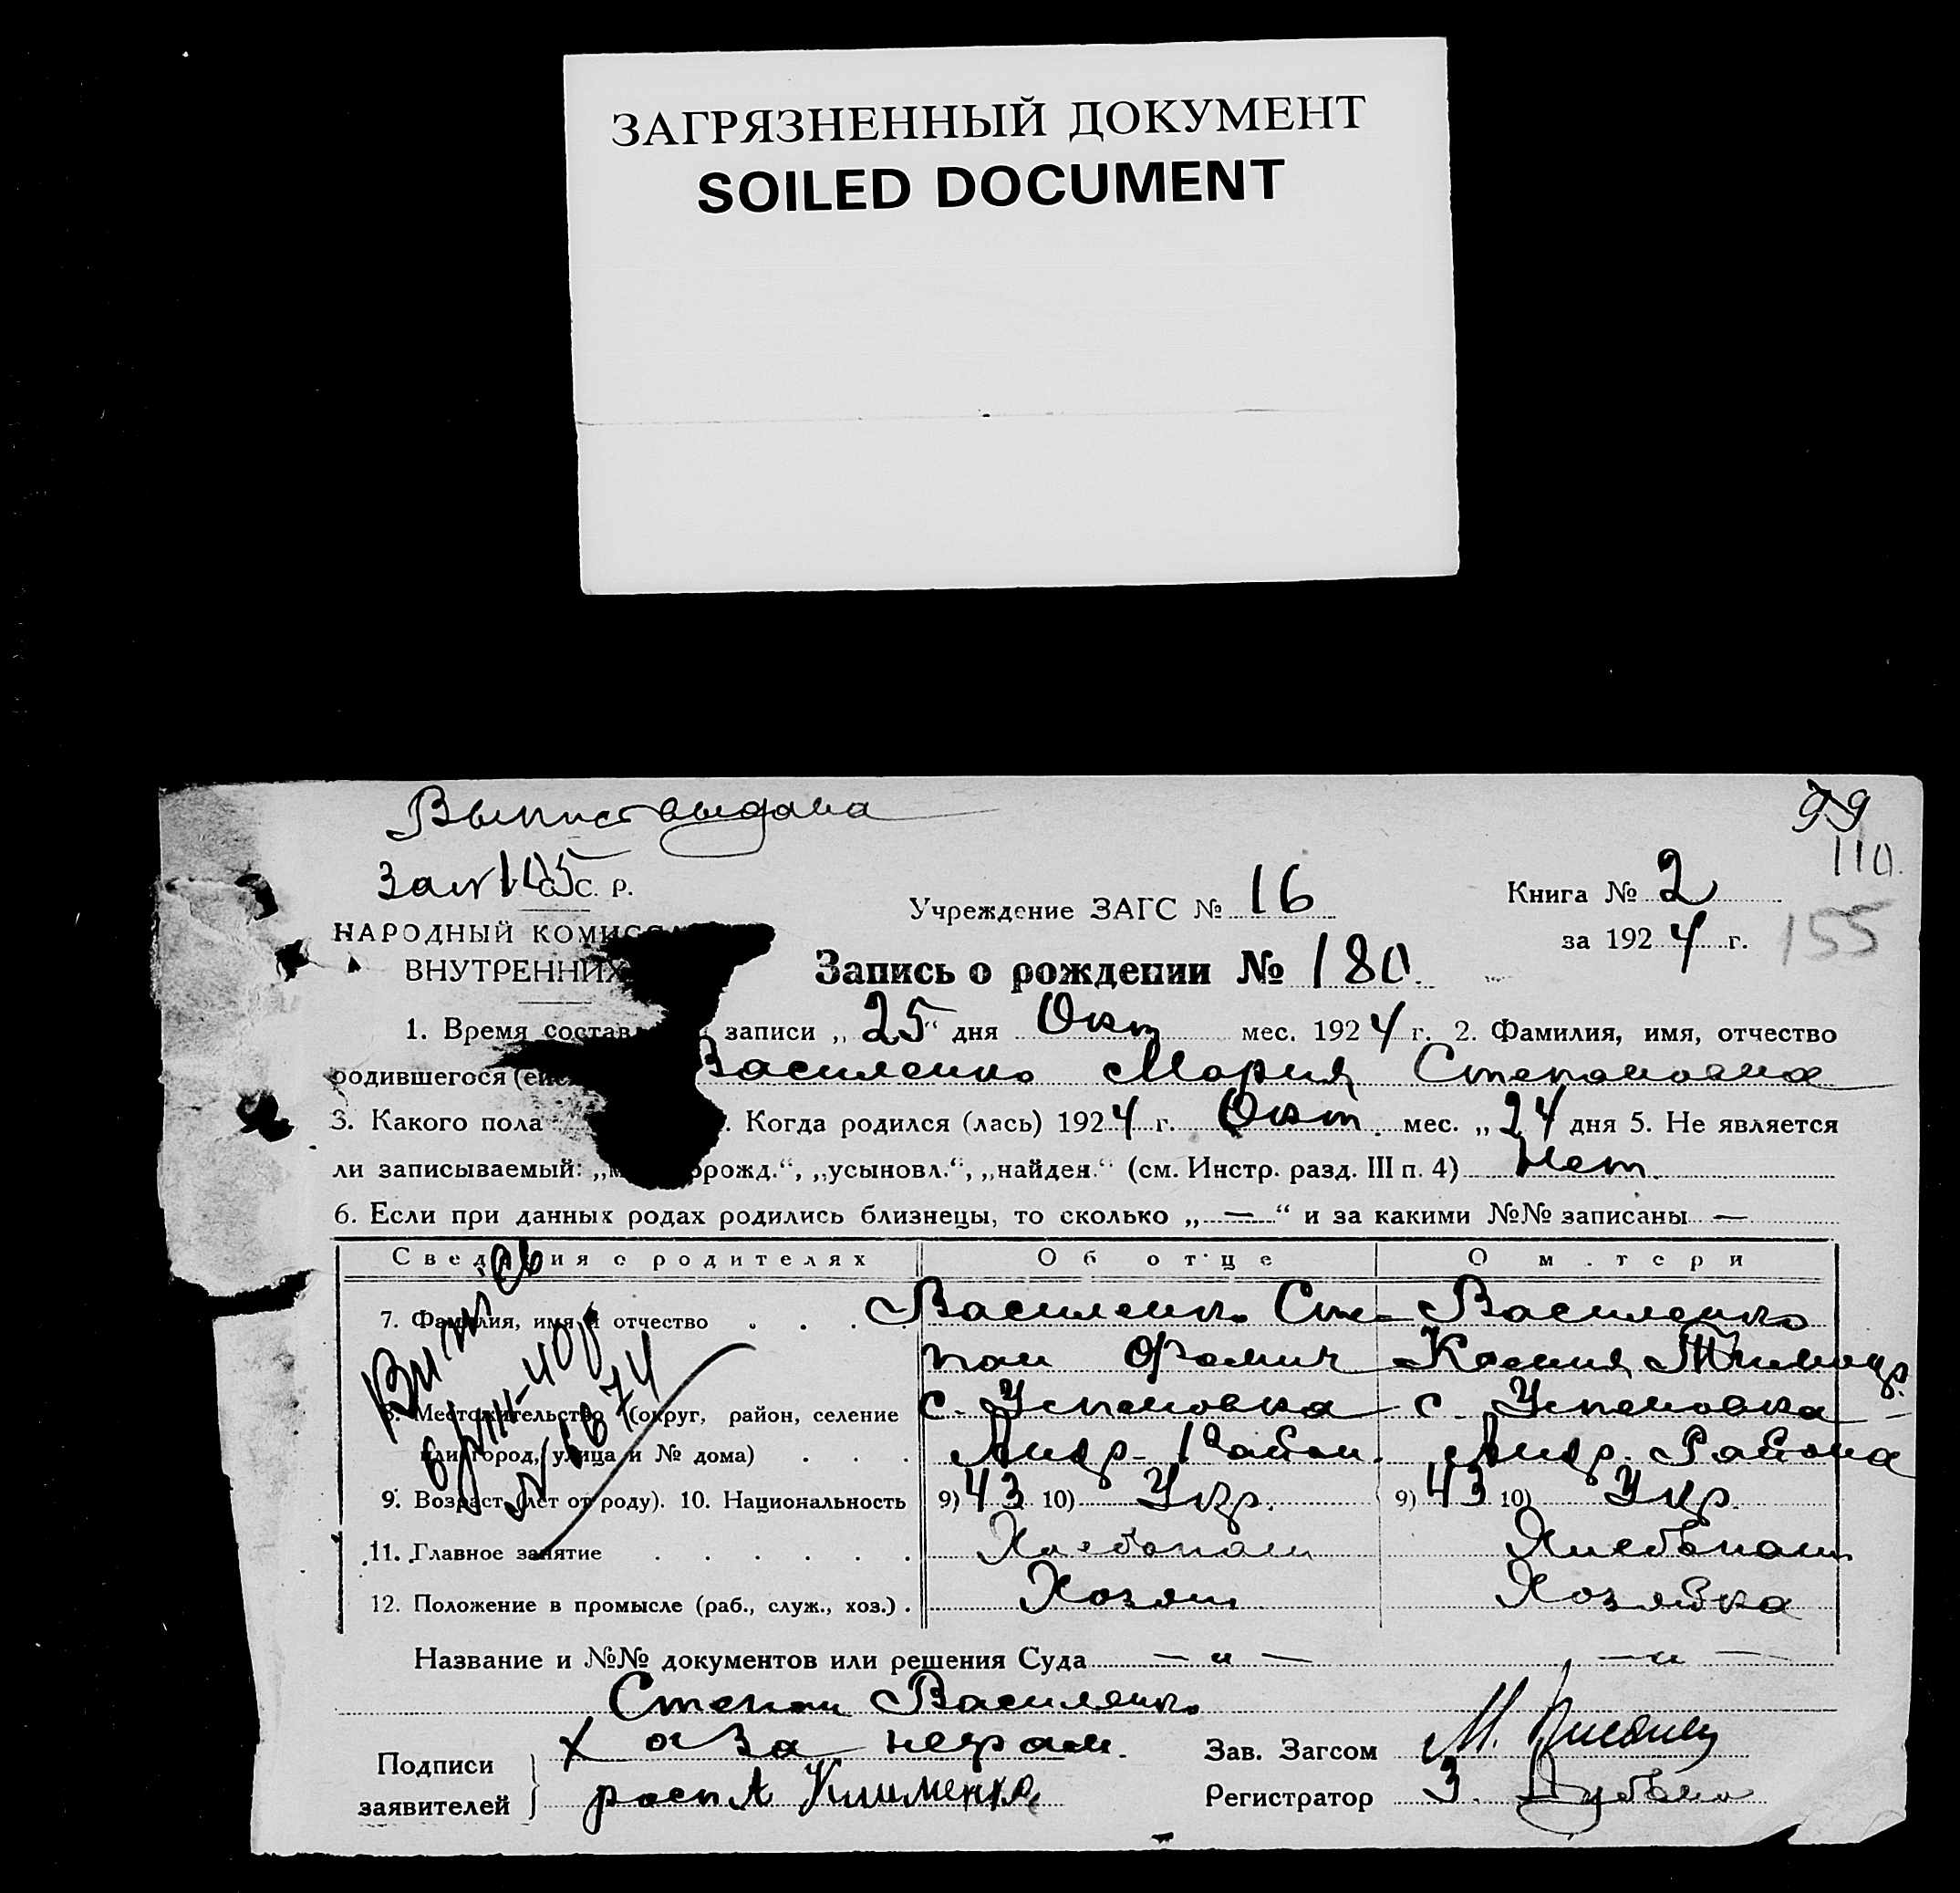 ЗАГРЯЗНЕННЫЙ ДОКУМЕНТ
SOILED DOCUMENT
99
110
С. Р.
Учреждение ЗАГС № 16
Книга № 2
НАРОДНЫЙ
за 1924 г.
155
ВНУТРЕННИХ
Запись о рождении № 180.
1. Время состав записи „25“ дня Окт мес. 1924 г. 2. Фамилия, имя, отчество
родившегося Василенко Мария Степановна
3. Какого пола . Когда родился (лась) 1924 г. Окт. мес. „24 дня 5. Не является
ли записываемый: рожд.“, „усыновл.“, „найден.“ (см. Инстр. разд. III п. 4) Нет.
6. Если при данных родах родились близнецы, то сколько „—“ и за какими №№ записаны —
Сведения о родителях Об отце О м тери
7. Фамилия, имя и отчество Василенко Сте- Василенко
пан Фомич Ксения
8. Местожительство (округ, район, селение с. Успеновка с. Успеновка
или город, улица и № дома) Андр. Район. Андр. Района
9. Возраст (лет от роду). 10. Национальность 9) 43 10) Укр. 9) 43 10) Укр.
11. Главное занятие Хлебопаш Хлебопаш
12. Положение в промысле (раб., служ., хоз.) Хозяин Хозяйка
Название и №№ документов или решения Суда — „ — — „ —
Степан Василенко
Подписи
заявителей
х а за неграм.
расп А Клименко
Зав. Загсом М.
Регистратор З.